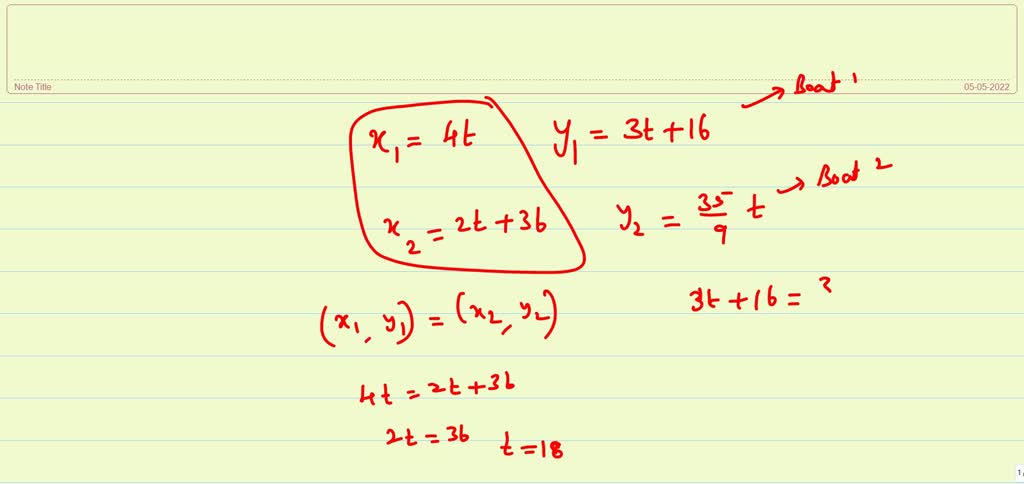 Note Title
05-05-2022
x₁ = 4t y₁ = 3t + 16 → Boat 1
x₂ = 2t + 36 y₂ = 35/9 t → Boat 2
(x₁, y₁) = (x₂, y₂) 3t + 16 = 3
4t = 2t + 36
2t = 36 t = 18
1